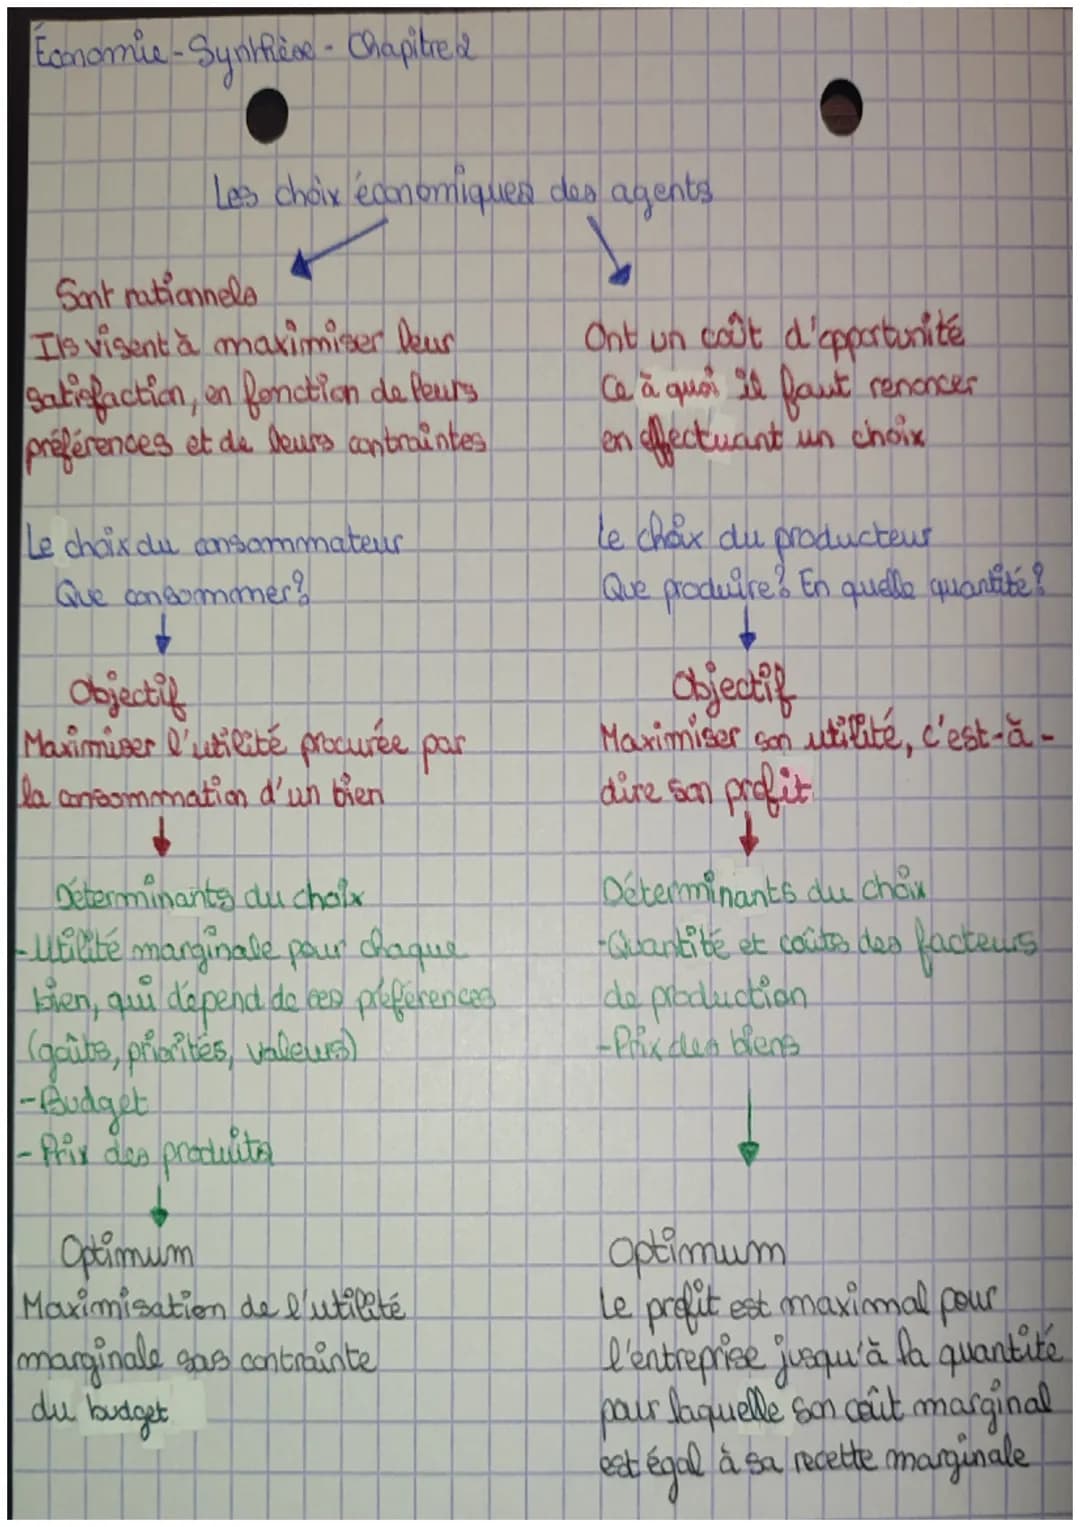 Économie - Synthèse - Chapitre 2
Les choix économiques des agents
Sont rationnels
Ils visent à maximiser leur
satisfaction, en fonction de leurs
préférences et de leurs contraintes
Ont un coût d'opportunité
Ce à quoi il faut renoncer
en effectuant un choix
Le choix du consommateur
Que consommer?
Objectif
Maximiser l'utilité procurée par
la consommation d'un bien
Déterminants du choix
- Utilité marginale pour chaque
bien, qui dépend de ses préférences
(goûts, priorités, valeurs)
- Budget
- Prix des produits
Optimum
Maximisation de l'utilité
marginale sas contrainte
du budget
Le choix du producteur
Que produire? En quelle quantité?
Objectif
Maximiser son utilité, c'est-à-
dire son profit
Déterminants du choix
- Quantité et coûts des facteurs
de production
- Prix des biens
Optimum
Le profit est maximal pour
l'entreprise jusqu'à la quantité
pour laquelle son coût marginal
est égal à sa recette marginale